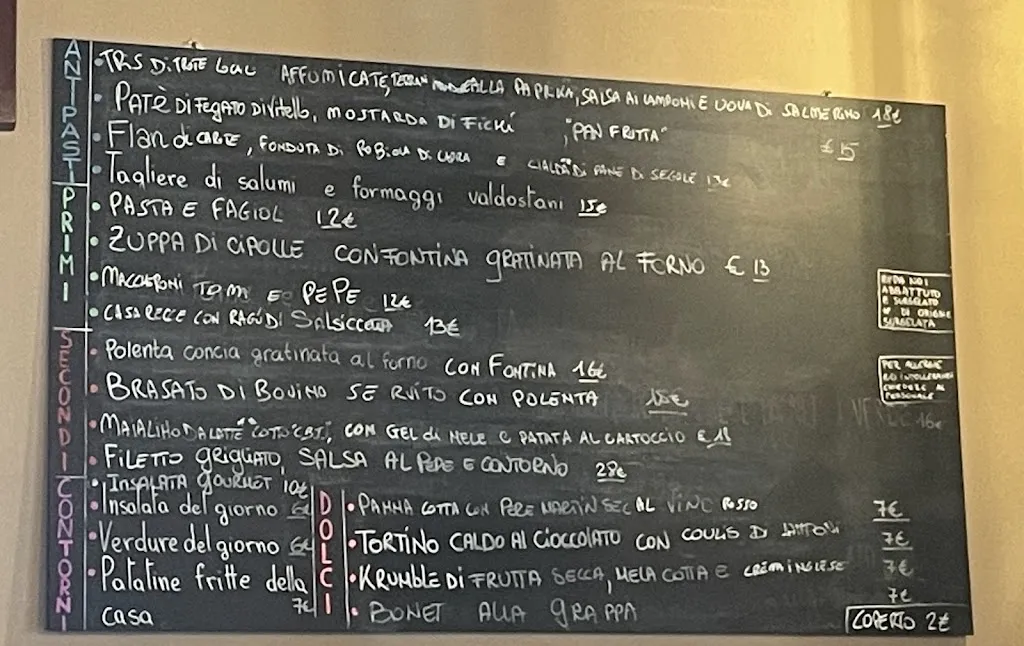 ANTIPASTI
• TRIS DI TROTE LOCALI AFFUMICATE, ALLA PAPRIKA, SALSA AI LAMPONI E UOVA DI SALMERINO 18€
• PATÈ DI FEGATO DI Vitello, MOSTARDA DI FICHI, "PAN FRUTTA" € 15
• Flan di CARTE, FONDUTA DI ROBIOLA DI CAPRA E CIALDA DI PANE DI SEGALE 13€
• Tagliere di salumi e formaggi valdostani 15€
PRIMI
• PASTA E FAGIOL 12€
• ZUPPA DI CIPOLLE CON FONTINA GRATINATA AL FORNO € 13
• MACCHERONI TOMA E PEPE 12€
• CASARECCE CON RAGÙ DI SALSICCIA 13€
SECONDI
• Polenta concia gratinata al forno CON FONTINA 16€
• BRASATO DI BOVINO SERVITO CON POLENTA
• MAIALINO DA LATTE COTTO CBT, CON GEL di MELE E PATATA AL CARTOCCIO €
• FILETTO GRIGLIATO, SALSA AL PEPE E CONTORNO 28€
CONTORNI
• INSALATA GOURMET 10€
• Insalata del giorno 6€
• Verdure del giorno 6€
• Patatine fritte della
casa 7€
DOLCI
• PANNA COTTA CON PERE MARTIN SEC AL VINO ROSSO 7€
• TORTINO CALDO AL CIOCCOLATO CON COULIS DI 7€
• KRUMBLE DI FRUTTA SECCA, MELA COTTA E CREMA INGLESE 7€
• BONET ALLA GRAPPA 7€
ABBATTUTO
E SURGELATO
O DI ORIGINE
SURGELATA
PER ALLERGIE
ED INTOLLERANZE
CHIEDERE AL
PERSONALE
16€
COPERTO 2€